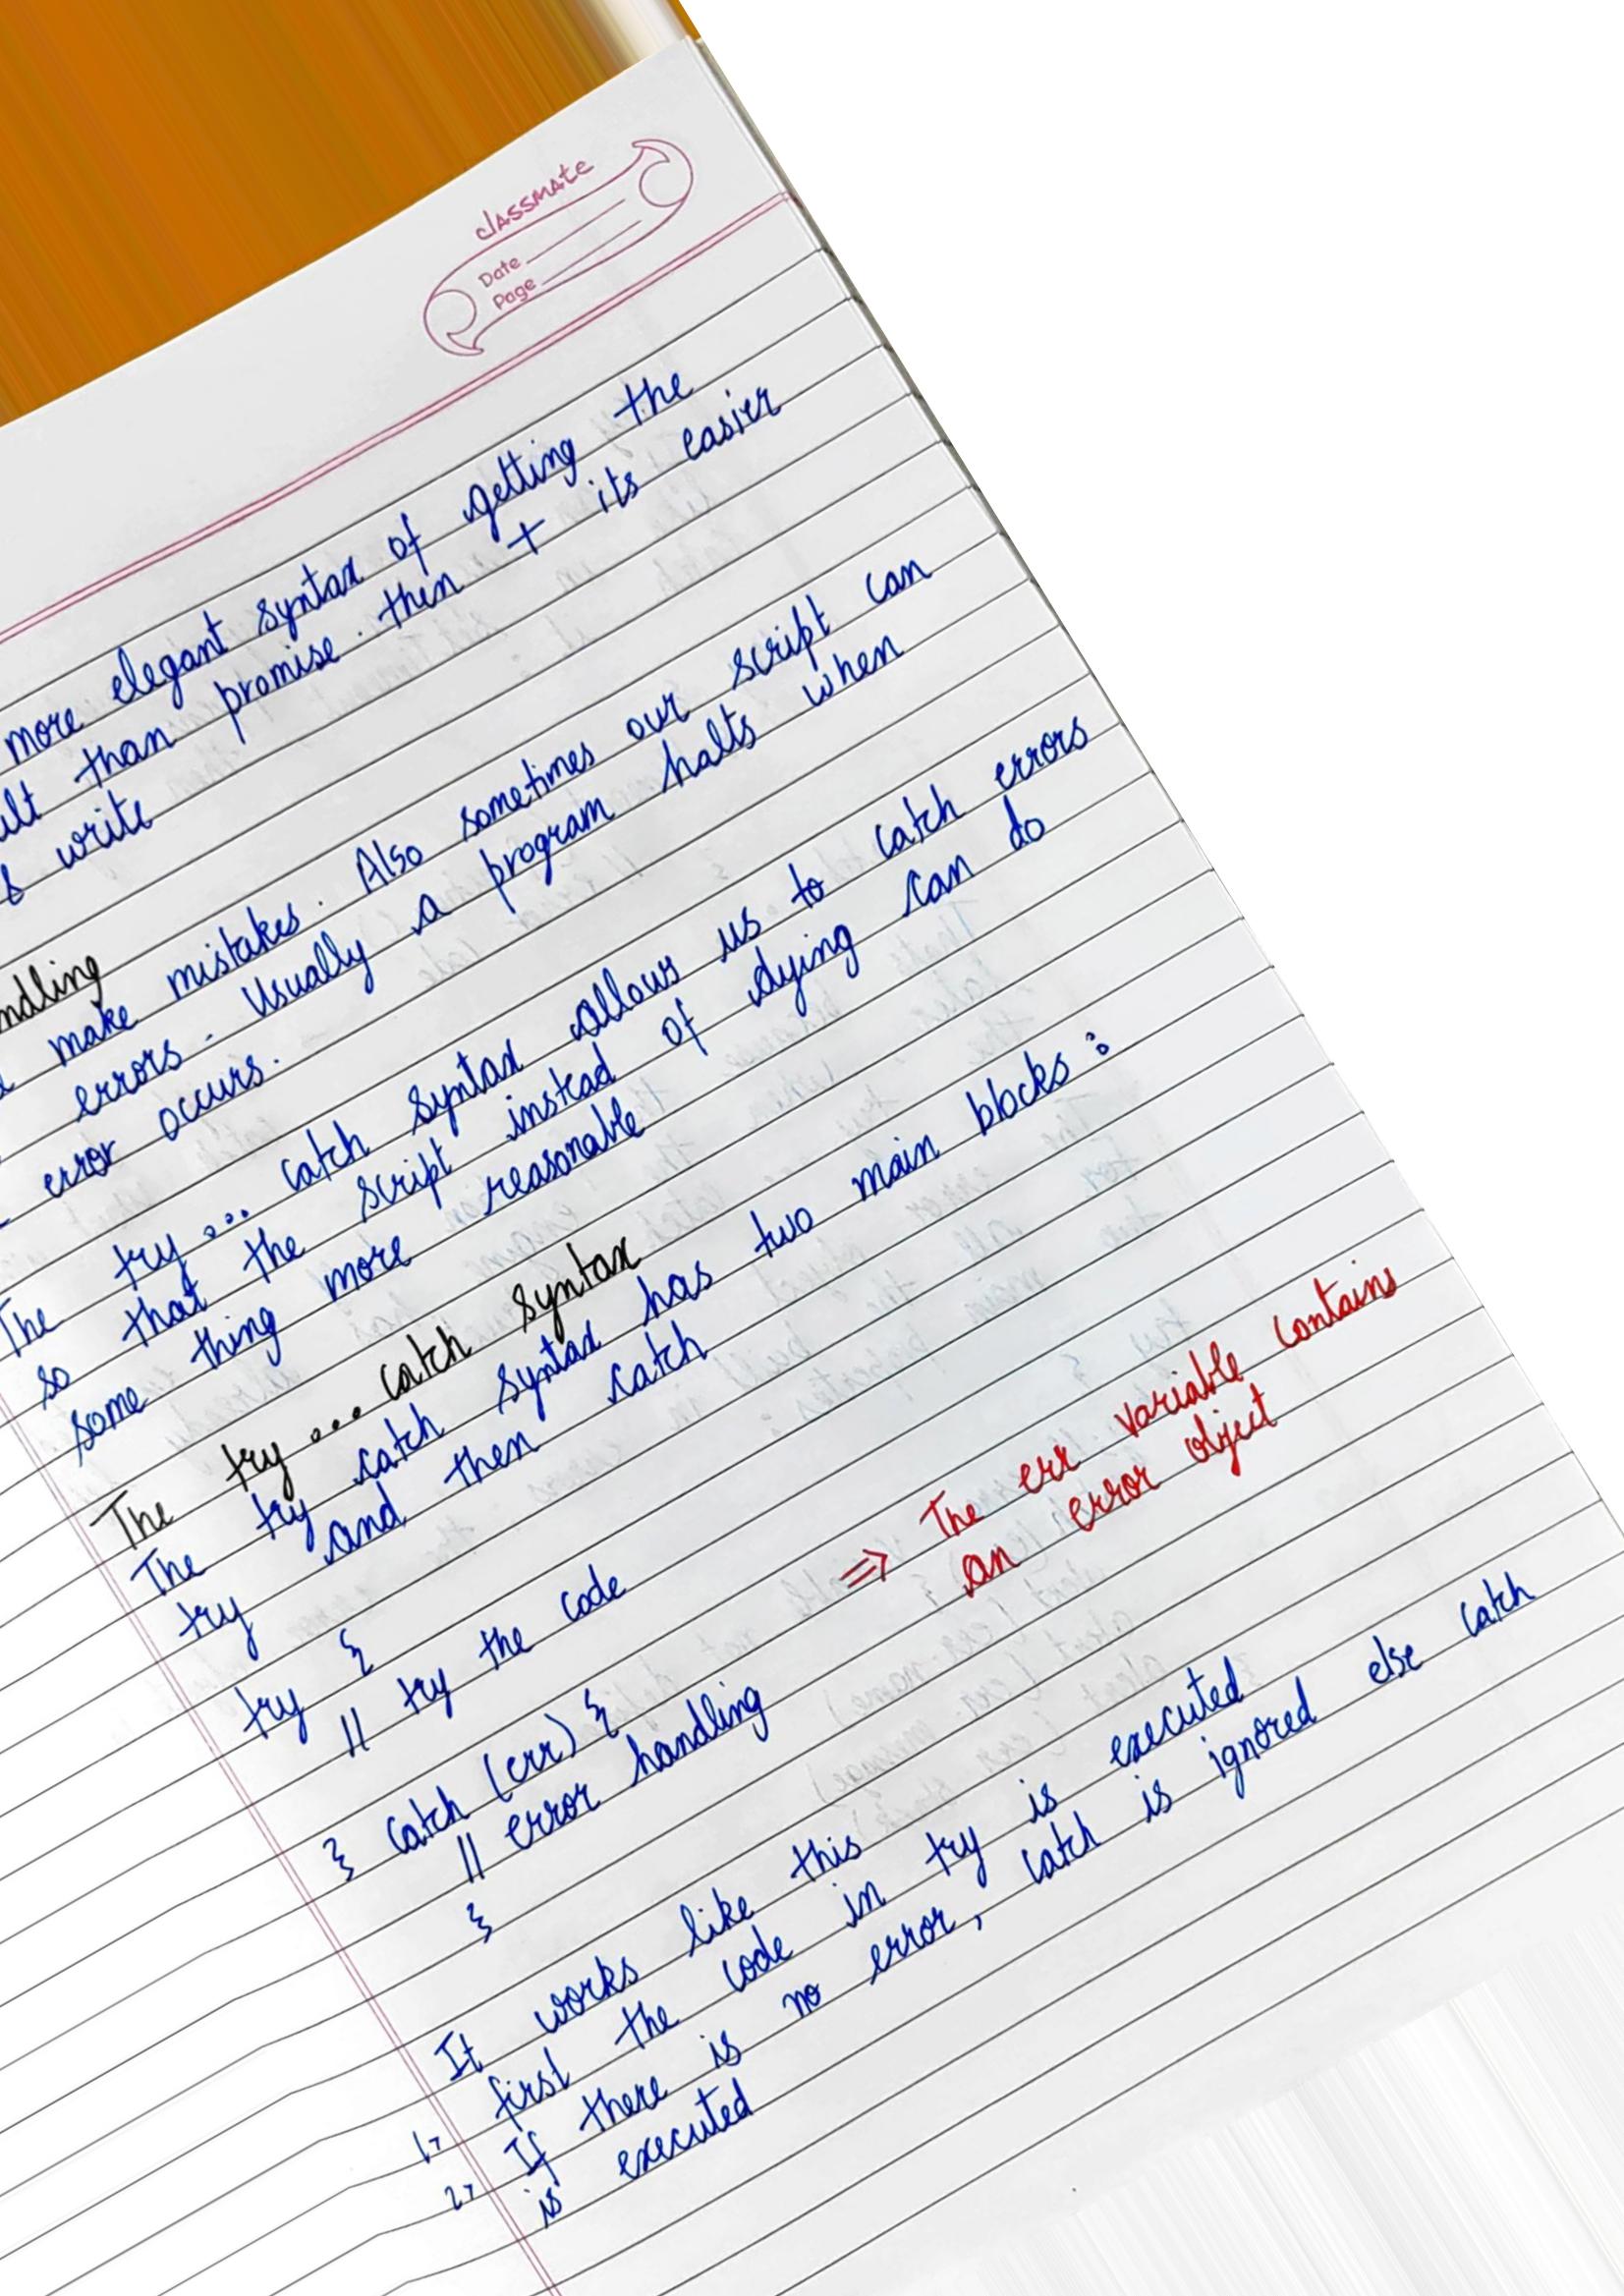 classmate
Date
Page
more elegant syntax of getting the
than promise. then + its easier
& write
make mistakes. Also sometimes our script can
errors. Usually a program halts when
error occurs.
The try... catch syntax allows us to catch errors
so that the script instead of dying can do
some thing more reasonable
The try... catch syntax
The try catch syntax has two main blocks :
try and then catch
try {
// try the code
} catch (err) { ⇒ The err variable contains
// error handling an error object
}
It works like this
1> first the code in try is executed
2> If there is no error, catch is ignored else catch
is executed